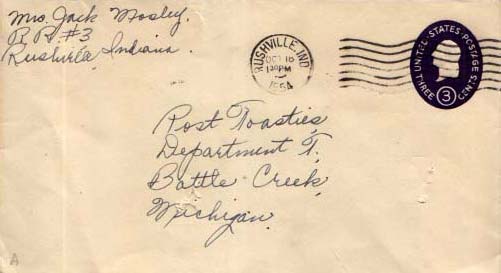 Mrs. Jack Mosley.
R R #3
Rushville Indiana.
RUSHVILLE, IND.
OCT 18
1 30 PM
1954
UNITED·STATES·POSTAGE
THREE 3 CENTS
Post Toasties,
Department T.
Battle Creek,
Michigan.
A